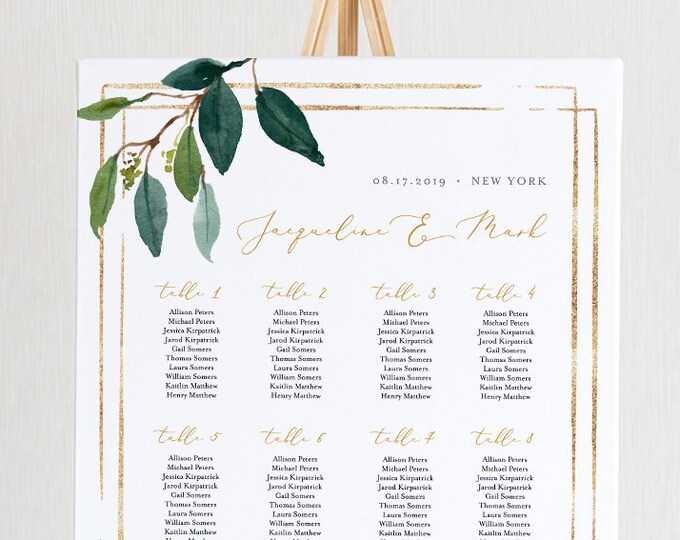 08.17.2019 • NEW YORK
Jacqueline & Mark
table 1 table 2 table 3 table 4
Allison Peters Allison Peters Allison Peters Allison Peters
Michael Peters Michael Peters Michael Peters Michael Peters
Jessica Kirpatrick Jessica Kirpatrick Jessica Kirpatrick Jessica Kirpatrick
Jarod Kirpatrick Jarod Kirpatrick Jarod Kirpatrick Jarod Kirpatrick
Gail Somers Gail Somers Gail Somers Gail Somers
Thomas Somers Thomas Somers Thomas Somers Thomas Somers
Laura Somers Laura Somers Laura Somers Laura Somers
William Somers William Somers William Somers William Somers
Kaitlin Matthew Kaitlin Matthew Kaitlin Matthew Kaitlin Matthew
Henry Matthew Henry Matthew Henry Matthew Henry Matthew
table 5 table 6 table 7 table 8
Allison Peters Allison Peters Allison Peters Allison Peters
Michael Peters Michael Peters Michael Peters Michael Peters
Jessica Kirpatrick Jessica Kirpatrick Jessica Kirpatrick Jessica Kirpatrick
Jarod Kirpatrick Jarod Kirpatrick Jarod Kirpatrick Jarod Kirpatrick
Gail Somers Gail Somers Gail Somers Gail Somers
Thomas Somers Thomas Somers Thomas Somers Thomas Somers
Laura Somers Laura Somers Laura Somers Laura Somers
William Somers William Somers William Somers William Somers
Kaitlin Matthew Kaitlin Matthew Kaitlin Matthew Kaitlin Matthew
Henry Matthew Henry Matthew Henry Matthew Henry Matthew